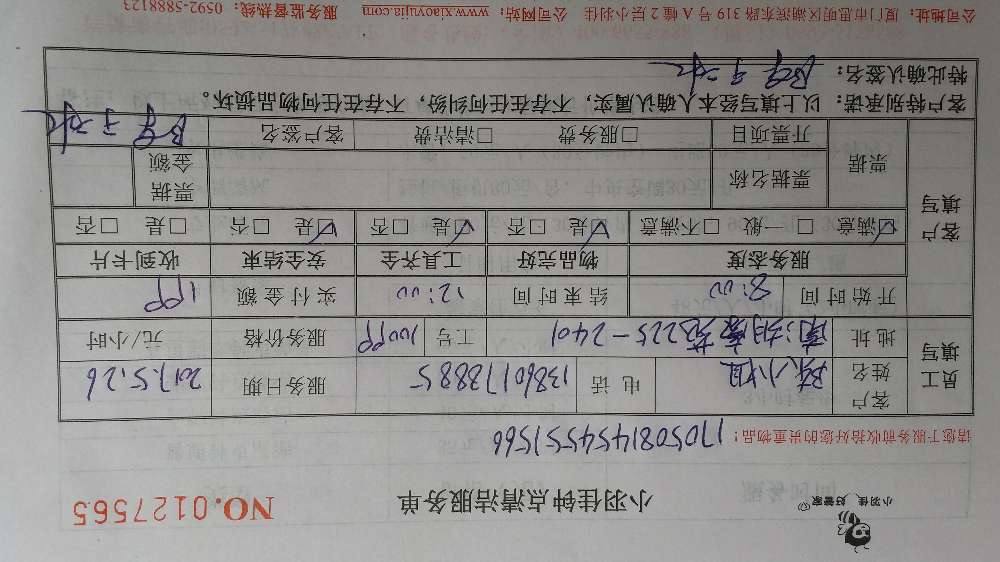 小羽佳 好管家
小羽佳钟点清洁服务单
NO.0127565
请您于服务前收拾好您的贵重物品!
17050814545551566
员工填写 客户姓名 陈小姐 电话 13860178885 服务日期 2017.5.26
地址 225-2401 工号 服务价格 元/小时
开始时间 8:00 结束时间 12:00 实付金额
客户填写 服务态度 物品完好 工具齐全 安全结束 收到卡片
☑满意 □一般 □不满意 ☑是 □否 ☑是 □否 ☑是 □否 □是 □否
票据 票据名称 票据金额
开票项目 □服务费 □清洁费 客户签名
客户特别承诺:以上填写经本人确认,真实属实,不存在任何纠纷,不存在任何物品损坏。
特此确认签名:
公司地址:厦门市思明区湖滨东路 319 号 A 幢 2 层小羽佳 公司网站:www.xiaoyujia.com 服务监督热线:0592-5888123